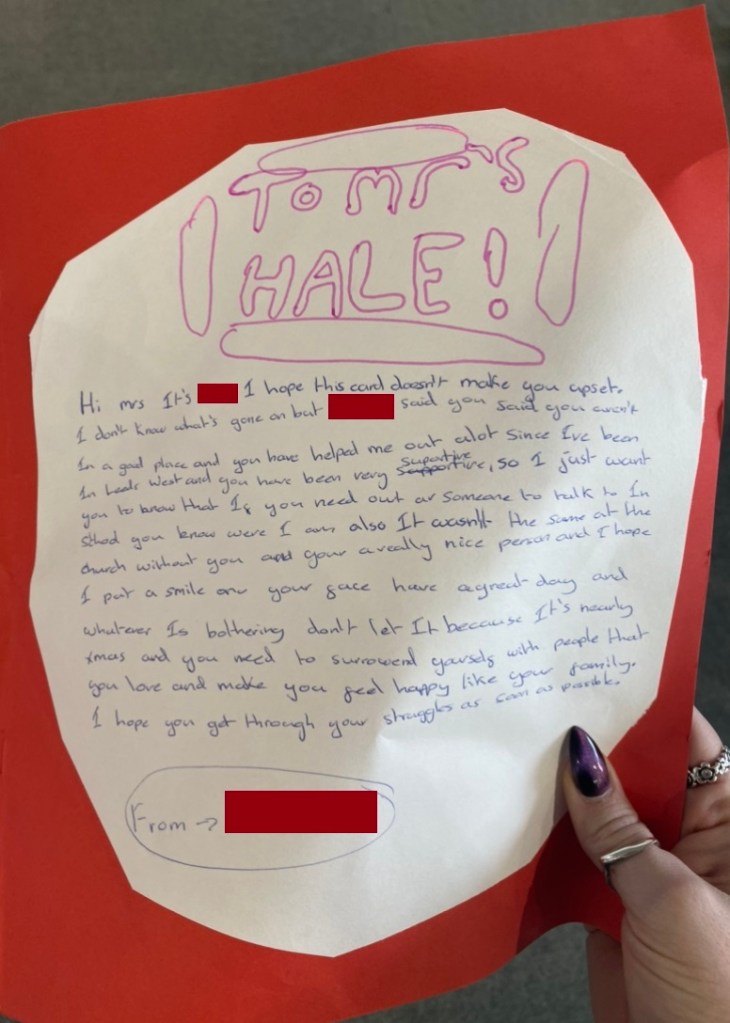 To mr's
HALE!
Hi mrs It's I hope this card doesn't make you upset.
I don't know what's gone on but said you said you aren't
In a good place and you have helped me out alot since I've been
In Leeds West and you have been very supportive, so I just want
you to know that If you need out or someone to talk to In
school you know were I am also It wasn't the same at the
church without you and your a really nice person and I hope
I put a smile one your face have a great day and
whatever Is bothering don't let It because It's nearly
xmas and you need to surrowend yourself with people that
you love and make you feel happy like your family.
I hope you get through your struggles as soon as possible.
From →